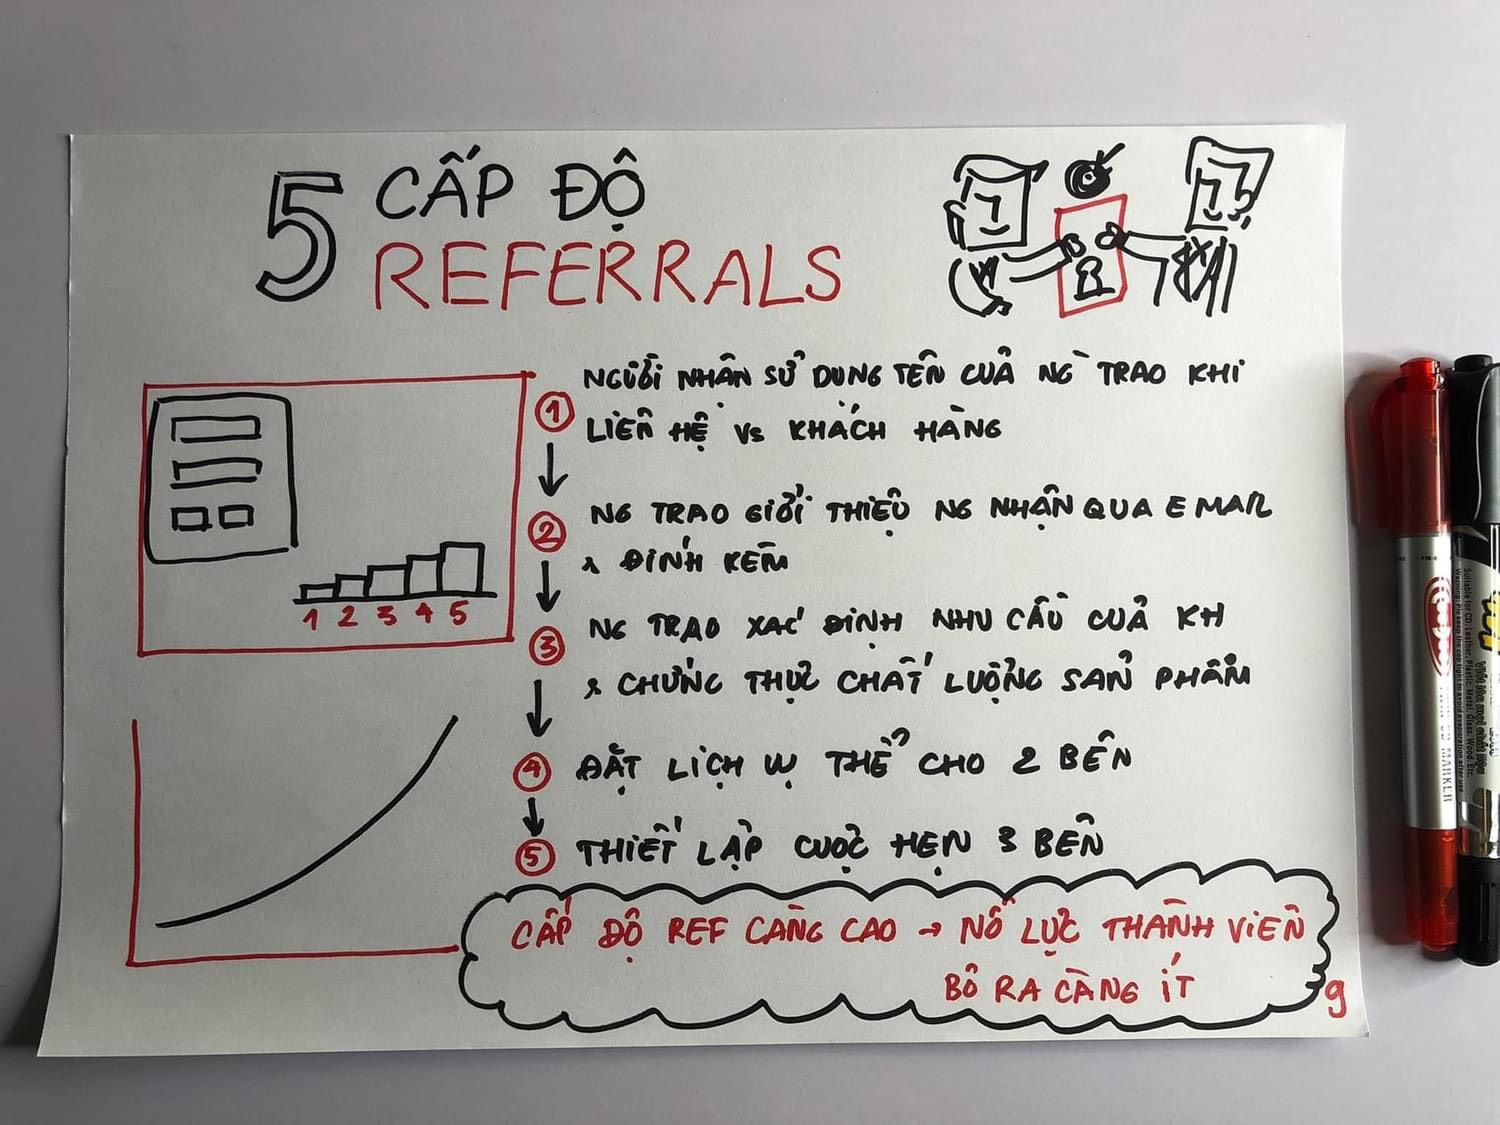 5 CẤP ĐỘ
REFERRALS
① NGƯỜI NHẬN SỬ DỤNG TÊN CUẢ NG TRAO KHI
LIÊN HỆ VS KHÁCH HÀNG
② NG TRAO GIỚI THIỆU NG NHẬN QUA EMAIL
& ĐÍNH KÈM
③ NG TRAO XÁC ĐỊNH NHU CẦU CUẢ KH
& CHỨNG THỰC CHẤT LƯỢNG SẢN PHẨM
④ ĐẶT LỊCH CỤ THỂ CHO 2 BÊN
⑤ THIẾT LẬP CUỘC HẸN 3 BÊN
1 2 3 4 5
CẤP ĐỘ REF CÀNG CAO → NỖ LỰC THÀNH VIÊN
BỎ RA CÀNG ÍT
9
Suitable for CD, Leather, Plastic, Metal, Glass, Wood, Etc.
MARKER